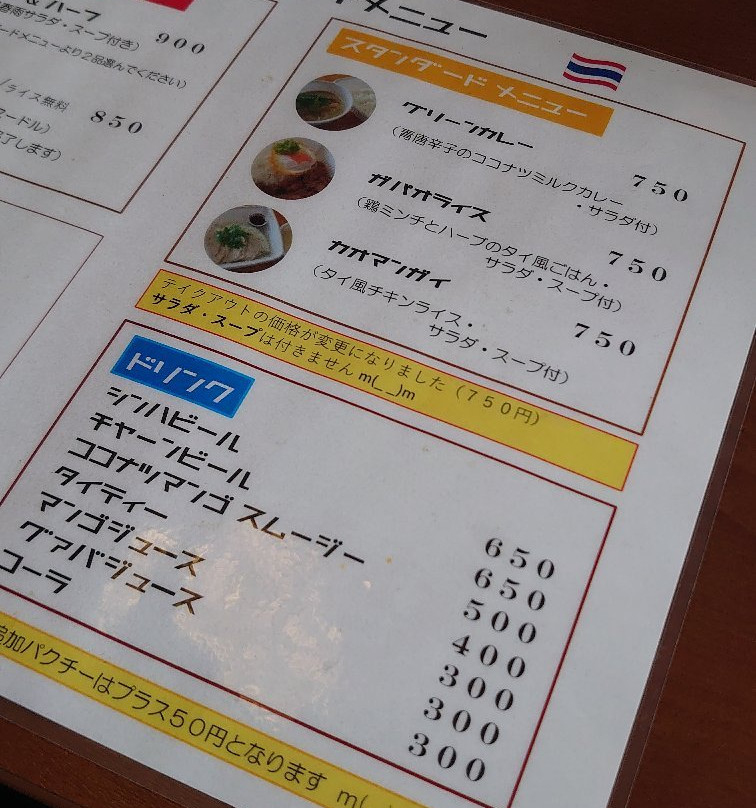 & ハーフ
春雨サラダ・スープ付き） 900
ードメニューより２品選んでください）
／ライス無料 850
ヌードル）
完了します）
メニュー
スタンダード メニュー
グリーンカレー
（青唐辛子のココナツミルクカレー 750
・サラダ付）
ガパオライス
（鶏ミンチとハーブのタイ風ごはん・ 750
サラダ・スープ付）
カオマンガイ
（タイ風チキンライス・ 750
サラダ・スープ付）
テイクアウトの価格が変更になりました（７５０円）
サラダ・スープは付きません m(_ _)m
ドリンク
シンハビール 650
チャーンビール 650
ココナツマンゴ スムージー 500
タイティー 400
マンゴジュース 300
グァバジュース 300
コーラ 300
追加パクチーはプラス５０円となります m(_